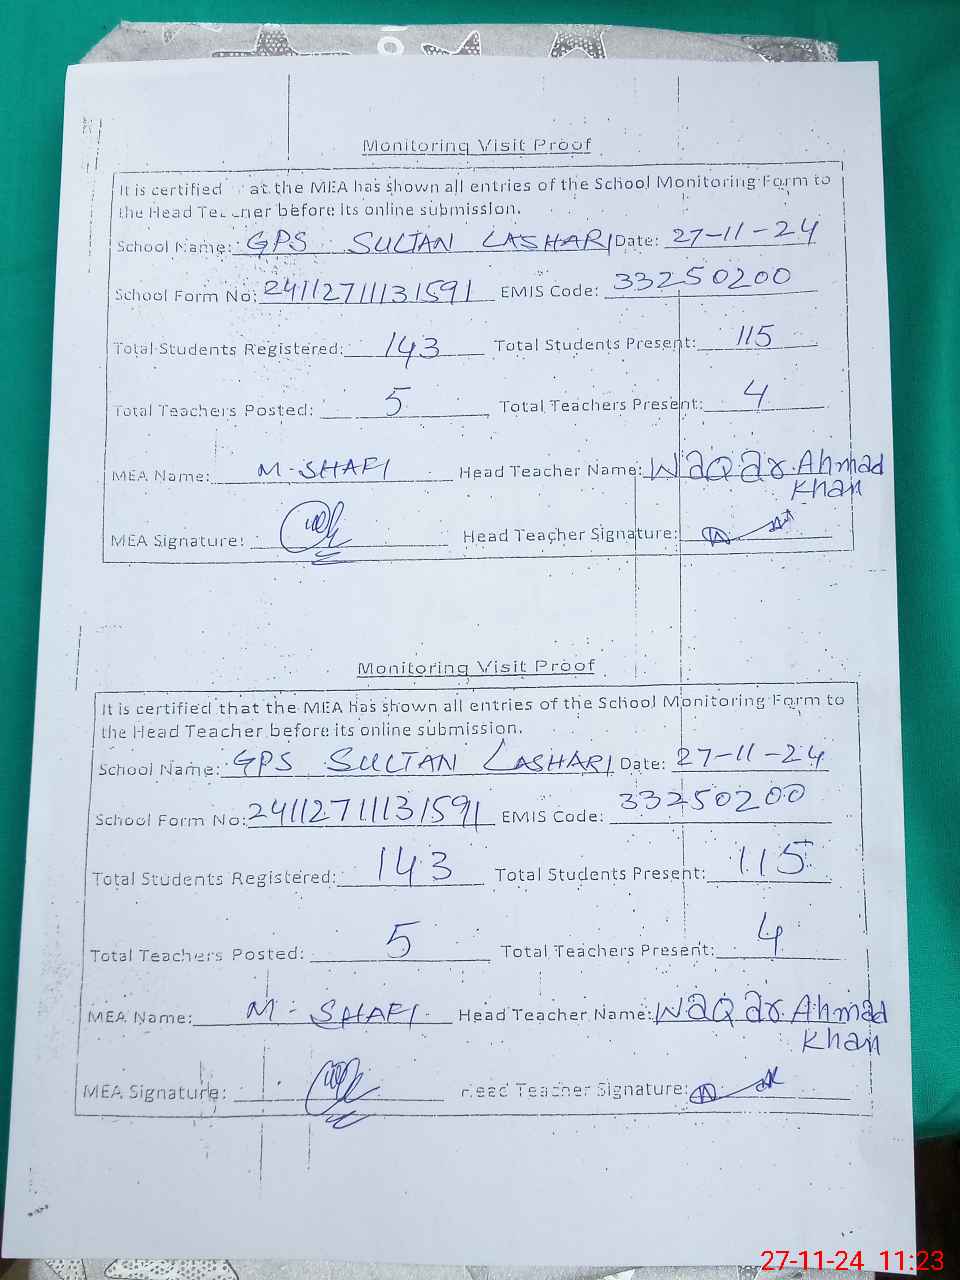 Monitoring Visit Proof
It is certified at the MEA has shown all entries of the School Monitoring Form to
the Head Teacher before its online submission.
School Name: GPS SULTAN LASHARI Date: 27-11-24
School Form No: 24112711131591 EMIS Code: 33250200
Total Students Registered: 143 Total Students Present: 115
Total Teachers Posted: 5 Total Teachers Present: 4
MEA Name: M-SHAFI Head Teacher Name: WaQar Ahmad
Khan
MEA Signature: Head Teacher Signature:
Monitoring Visit Proof
It is certified that the MEA has shown all entries of the School Monitoring Form to
the Head Teacher before its online submission.
School Name: GPS SULTAN LASHARI Date: 27-11-24
School Form No: 24112711131591 EMIS Code: 33250200
Total Students Registered: 143 Total Students Present: 115
Total Teachers Posted: 5 Total Teachers Present: 4
MEA Name: M-SHAFI Head Teacher Name: WaQar Ahmad
Khan
MEA Signature: Head Teacher Signature:
27-11-24 11:23